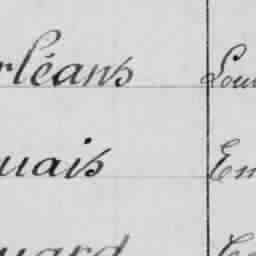 rléans Lou
uais Em
uard